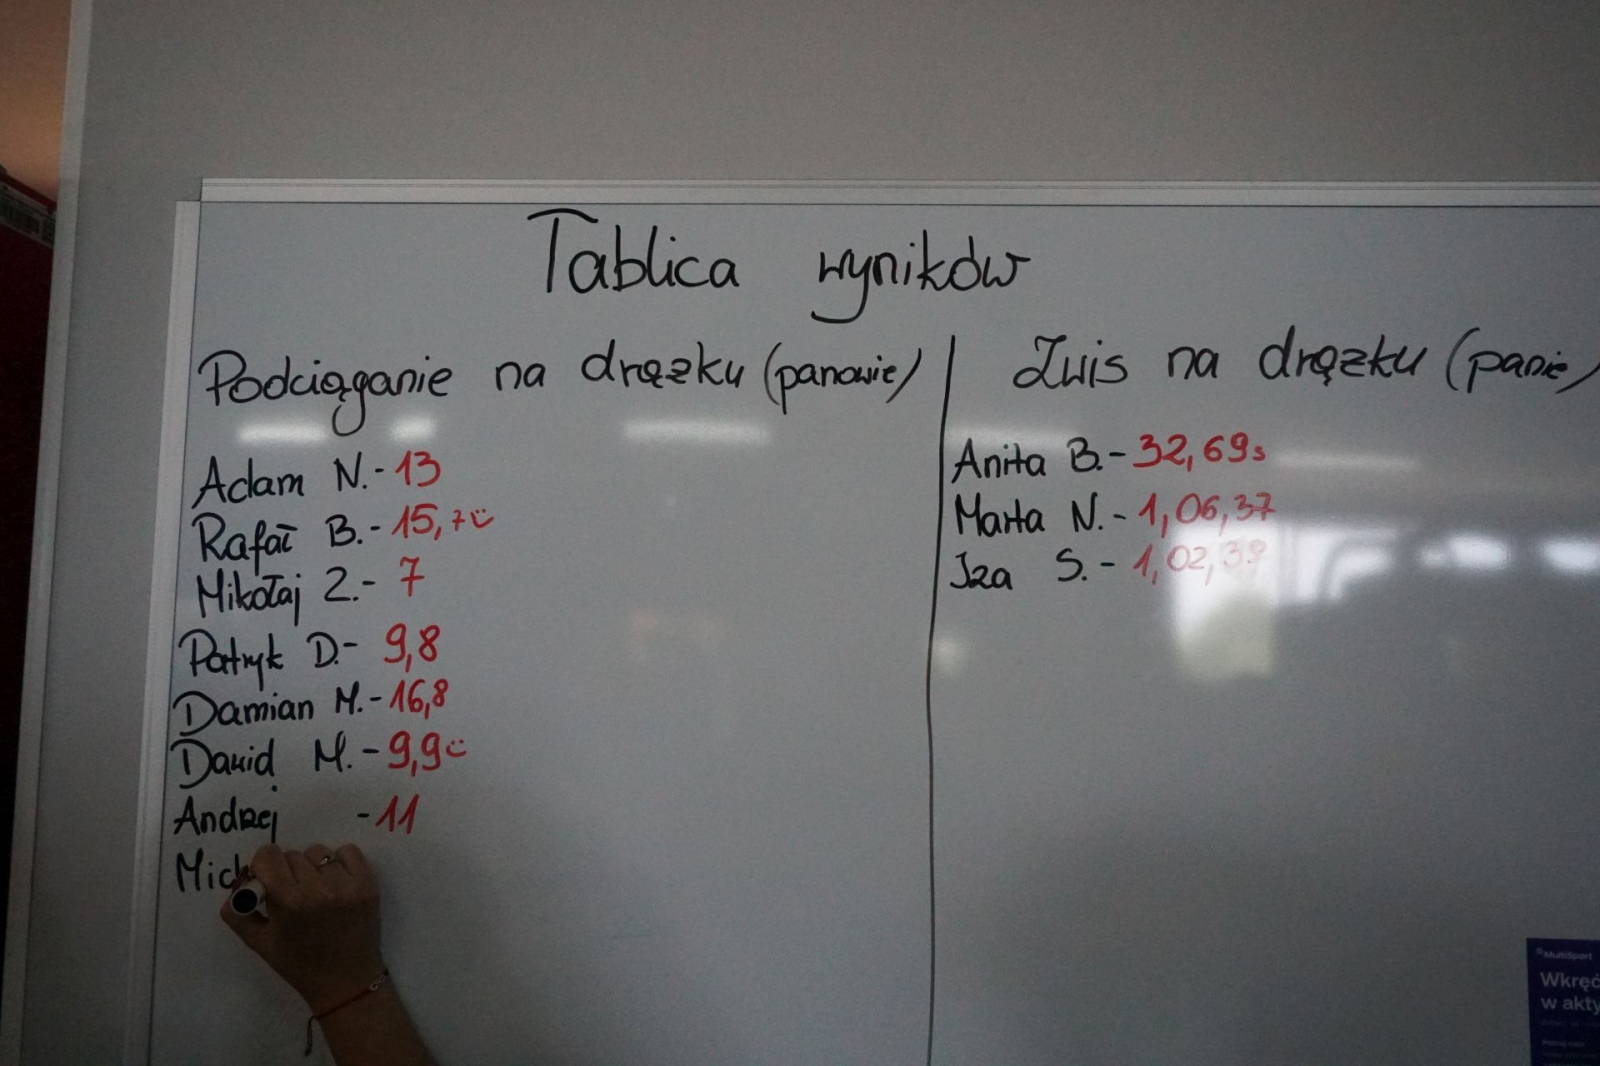 Tablica wyników
Podciąganie na drązku (panowie)
Adam N. - 13
Rafał B. - 15,7 ☺
Mikołaj Z. - 7
Patryk D. - 9,8
Damian M. - 16,8
Dawid M. - 9,9 ☺
Andrzej - 11
Mich
Zwis na drązku (panie)
Anita B. - 32,69s
Marta N. - 1,06,37
Iza S. - 1,02,39
MultiSport
Wkręć
w akty